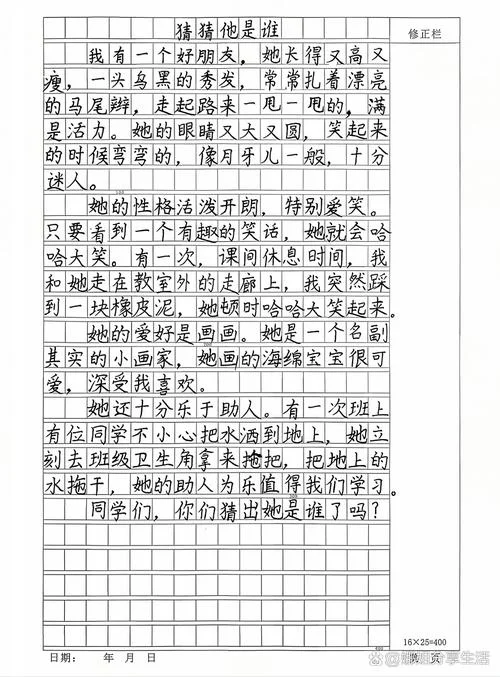 猜猜他是谁
修正栏
我有一个好朋友，她长得又高又
瘦，一头乌黑的秀发，常常扎着漂亮
的马尾辫，走起路来一甩一甩的，满
是活力。她的眼睛又大又圆，笑起来
的时候弯弯的，像月牙儿一般，十分
迷人。
她的性格活泼开朗，特别爱笑。
只要看到一个有趣的笑话，她就会哈
哈大笑。有一次，课间休息时间，我
和她走在教室外的走廊上，我突然踩
到一块橡皮泥，她顿时哈哈大笑起来。
她的爱好是画画。她是一个名副
其实的小画家，她画的海绵宝宝很可
爱，深受我喜欢。
她还十分乐于助人。有一次班上
有位同学不小心把水洒到地上，她立
刻去班级卫生角拿来拖把，把地上的
水拖干，她的助人为乐值得我们学习。
同学们，你们猜出她是谁了吗？
16×25=400
日期： 年 月 日
页
分享生活